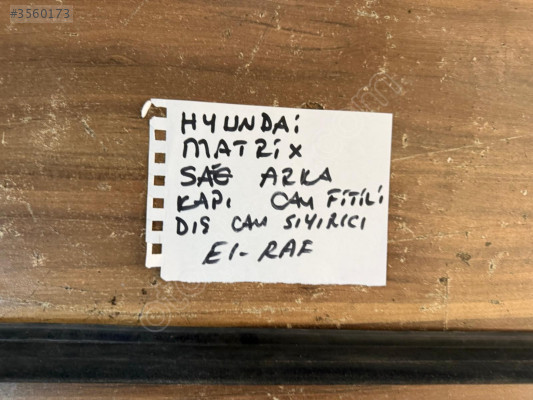 #3560173
HYUNDAİ
MATRİX
SAĞ ARKA
KAPI CAM FİTİLİ
DIŞ CAM SIYIRICI
E1-RAF